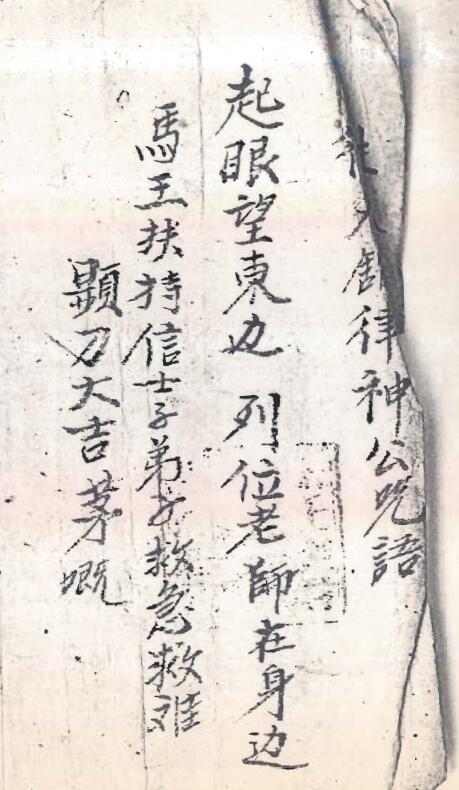 律神公咒語
起眼望東边 列位老師在身边
馬王扶持信士子弟子救急救难
顕刀大吉茅嘅